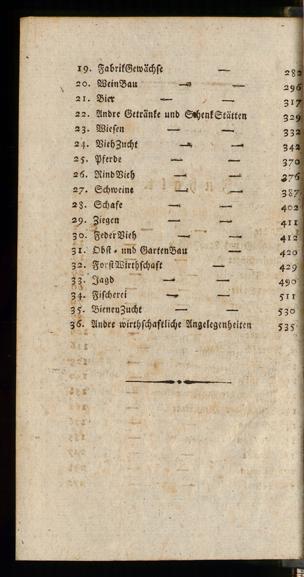 19. FabrikGewächse — 282
20. WeinBau — — 296
21. Bier — — 317
22. Andre Getränke und SchenkStätten 329
23. Wiesen — — 332
24. ViehZucht — — 342
25. Pferde — — 370
26. RindVieh — — 376
27. Schweine — — 387
28. Schafe — — 402
29. Ziegen — — 411
30. FederVieh — — 412
31. Obst- und GartenBau — 420
32. ForstWirthschaft — 429
33. Jagd — — 490
34. Fischerei — — 511
35. BienenZucht — — 530
36. Andre wirthschaftliche Angelegenheiten 535